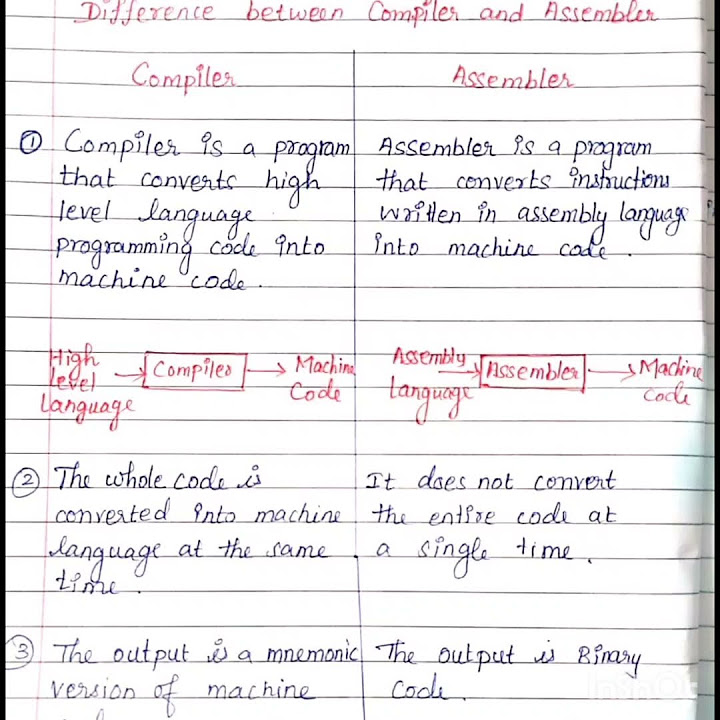 Difference between Compiler and Assembler
Compiler
Assembler
① Compiler is a program
that converts high
level language
programming code into
machine code.
Assembler is a program
that converts instructions
written in assembly language
into machine code.
High
level
language
Compiler
Machine
Code
Assembly
language
Assembler
Machine
code
② The whole code is
converted into machine
language at the same
time.
It does not convert
the entire code at
a single time.
③ The output is a mnemonic
version of machine
The output is Binary
code.